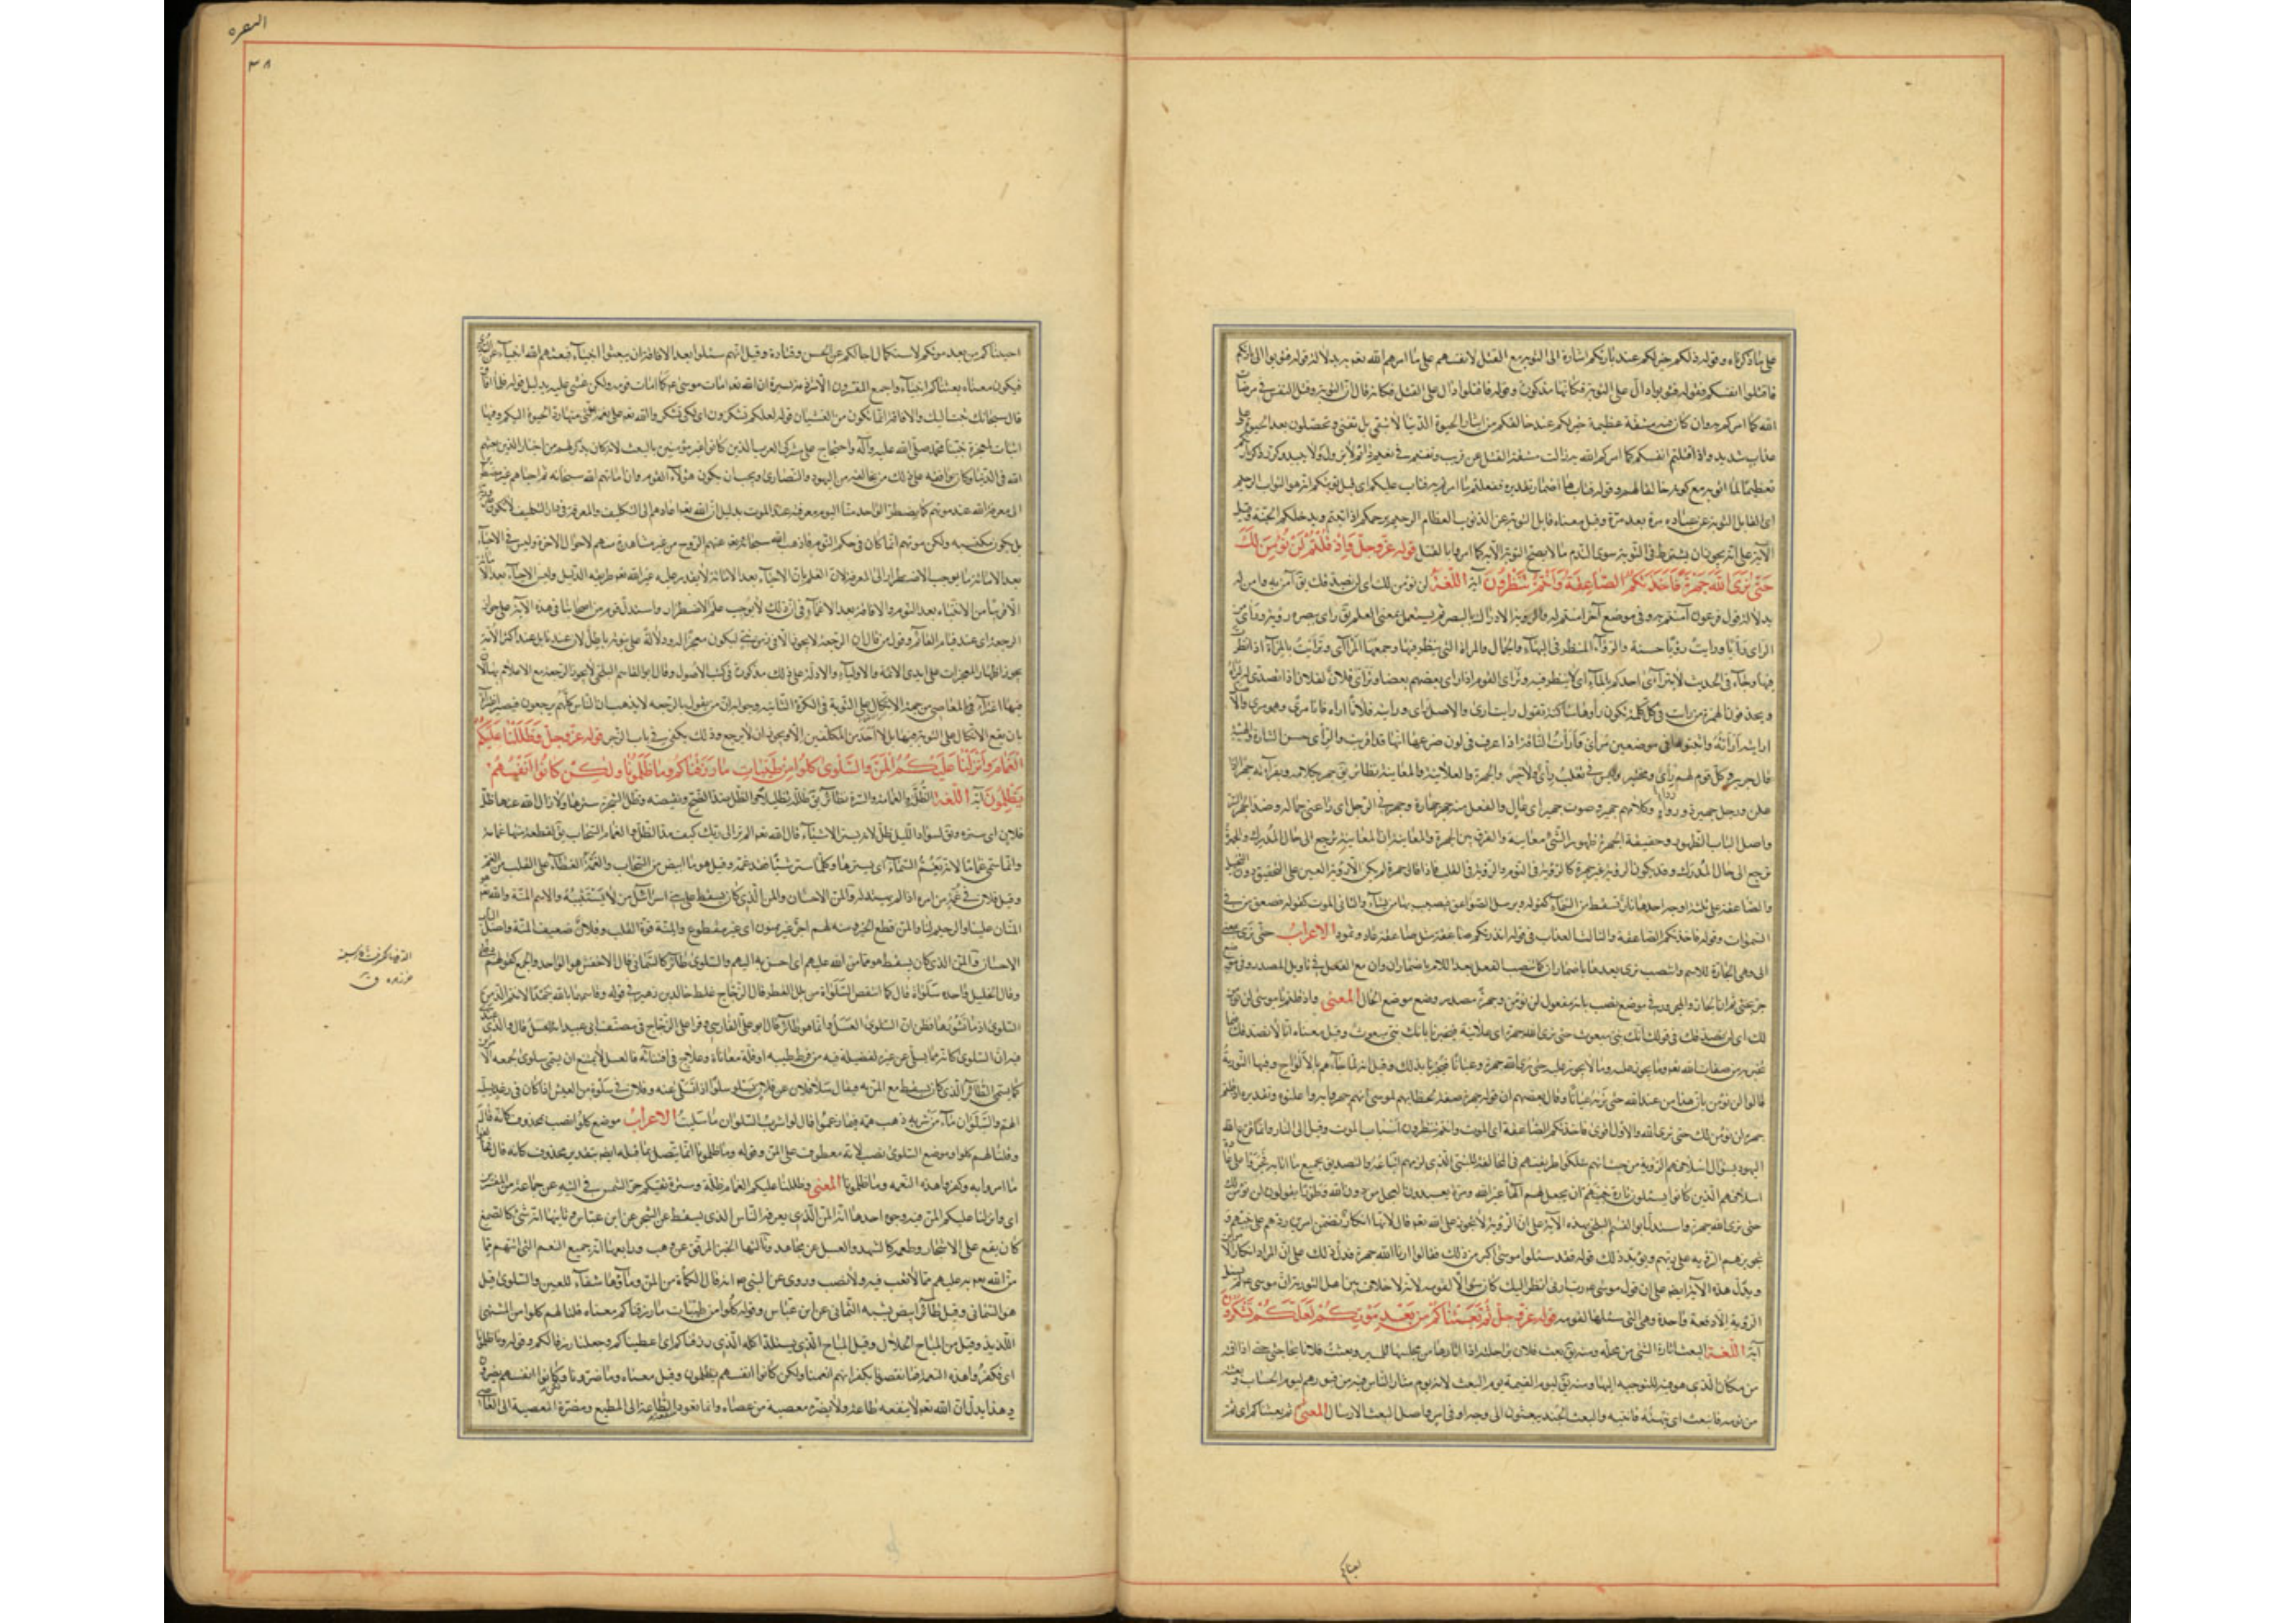 على ما ذكرناه وقوله ذلكم خير لكم عند بارئكم اشارة الى التوبة مع القتل لانفسهم على ما امرهم الله تعو به بدلالة قوله فتوبوا الى بارئكم
فاقتلوا انفسكم فقوله فتوبوا دال على التوبة فكانها مذكورة وقوله فاقتلوا دال على القتل فكانه قال ان التوبة وقتل النفس في مرضات
الله كما امركم به وان كان فيه مشقة عظيمة خير لكم عند خالقكم من ايثار الحيوة الدنيا لانها لا تبقى بل تفنى وتحصلون بعد الحيوة على
عذاب شديد واذا قتلتم انفسكم كما امركم الله به زالت مشقة القتل عن قريب وبقيتم في نعيم دائم لا يزول ولا يبيد وكرر ذكر بارئكم
تعظيما لما اتوا به مع كونه خالقا لهم وقوله فتاب عليكم هاهنا اضمار تقديره ففعلتم ما امرتم به فتاب عليكم اى قبل توبتكم انه هو التواب الرحيم
اى القابل التوبة عن عباده مرة بعد مرة وقيل معناه قابل التوبة عن الذنوب العظام الرحيم يرحمكم اذا تبتم ويدخلكم الجنة وفي
الآية على انه يجوز ان يشترط في التوبة سوى الندم ما لا يصح التوبة الا به كما امروا بالقتل قوله عز وجل واذ قلتم لن نؤمن لك
حتى نرى الله جهرة فاخذتكم الصاعقة وانتم تنظرون آية اللغة لن نؤمن لك اى لن نصدقك يق آمن به وآمن له
بدلالة قول فرعون آمنتم به وفي موضع آخر آمنتم له والرؤية الادراك بالبصر ثم يستعمل بمعنى العلم يق راى ببصره رؤية وراى من
الراى رأيا ورايت رؤيا حسنة والرؤاء المنظر في البهاء والجمال والمرآة التى ينظر فيها وجمعها المرائى وتراءيت بالمرآة اذا نظرت
فيها وجاء في الحديث لا يتراءى احدكم بالماء اى لا ينظر فيه وتراءى القوم اذا راى بعضهم بعضا وتراءى فلان لفلان اذا تصدى له ليراه
قال جرير وكل قوم لهم رأى ومختبر وليس في تغلب رأى ولا خبر والجهرة والعلانية والمعاينة نظائر يق جهر بكلامه وبقراءته جهرا اذا
اعلن ورجل جهير ذو رواء وكلامهم جهير وصوت جهير اى عال والفعل منه جهر جهارة وجهرني الرجل اى راعنى جماله وضد الجهر السر
واصل الباب الظهور وحقيقة الجهرة ظهور الشئ معاينة والفرق بين الجهرة والمعاينة ان المعاينة ترجع الى حال المدرك والجهرة
ترجع الى حال المدرك وقد يكون الرؤية غير جهرة كالرؤية في النوم والرؤية في القلب فاذا قال جهرة لم يكن الا رؤية العين على التحقيق دون التخيل
والصاعقة على ثلثة اوجه احدها نار تسقط من السماء كقوله ويرسل الصواعق فيصيب بها من يشاء والثانى الموت كقوله فصعق من في
السموات وقوله فاخذتكم الصاعقة والثالث العذاب في قوله انذرتكم صاعقة مثل صاعقة عاد وثمود الاعراب حتى نرى بمعنى
الى وهى الجارة للاسم وانتصب نرى بعدها باضمار ان كما ينتصب الفعل بعد اللام باضمار ان وان مع الفعل في تاويل المصدر وفى موضع
جر بحتى ثم ان الجار والمجرور في موضع نصب بانه مفعول لن نؤمن وجهرة مصدر وضع موضع الحال المعنى واذ قلتم يا موسى لن نؤمن
لك اى لن نصدقك في قولك انك نبى مبعوث حتى نرى الله جهرة اى علانية فيخبرنا بانك نبى مبعوث وقيل معناه انا لا نصدقك فيما
تخبر به من صفات الله تعو وما يجوز عليه وما لا يجوز عليه حتى نرى الله جهرة وعيانا فيخبرنا بذلك وقيل انه لما جاءهم بالالواح وفيها التورية
قالوا لن نؤمن بان هذا من عند الله حتى نريه عيانا وقال بعضهم ان قوله جهرة صفة لخطابهم لموسى انهم جهروا به واعلنوه وتقديره واذ قلتم
جهرة لن نؤمن لك حتى نرى الله والاول اقوى فاخذتكم الصاعقة اى الموت وانتم تنظرون اسباب الموت وقيل الى النار وانما قرع الله
اليهود بسؤال اسلافهم الرؤية من حيث انهم سلكوا طريقتهم في المخالفة للنبى الذى لزمهم اتباعه والتصديق بجميع ما اتا به فجروا على عادة
اسلافهم الذين كانوا يسئلون تارة نبيهم ان يجعل لهم الها غير الله ومرة يعبدون العجل من دون الله وطورا يقولون لن نؤمن لك
حتى نرى الله جهرة واستدل ابو القسم البلخى بهذه الآية على ان الرؤية لا تجوز على الله تعو قال لانها انكار تضمن امرين ردهم على نبيهم و
تجويزهم الرؤية على ربهم ويؤيد ذلك قوله فقد سئلوا موسى اكبر من ذلك فقالوا ارنا الله جهرة فدل ذلك على ان المراد انكار الامرين
ويدل هذه الآية ايض على ان قول موسى رب ارنى انظر اليك كان سؤالا لقومه لانه لا خلاف بين اهل التورية ان موسى ع لم يسئل
الرؤية الا دفعة واحدة وهى التى سئلها لقومه قوله عز وجل ثم بعثناكم من بعد موتكم لعلكم تشكرون
آية اللغة البعث اثارة الشئ من محله ومنه يق بعث فلان راحلته اذا اثارها من مبركها للسير وبعثت فلانا لحاجتى اذا اقمته
من مكانه الذى هو فيه للتوجه اليها ومنه يق ليوم القيمة يوم البعث لانه يوم يثار الناس فيه من قبورهم ليوم الحساب وبعثته
من نومه فانبعث اى نبهته فانتبه والبعث الجند يبعثون الى وجه او في امر واصل البعث الارسال المعنى ثم بعثناكم اى ثم
بعثناكم
البقرة
٣٨
احييناكم من بعد موتكم لاستكمال اجالكم عن الحسن وقتادة وقيل انهم سئلوا بعد الافاقة ان يبعثوا انبياء فبعثهم الله انبياء عن السدى
فيكون معناه بعثناكم انبياء واجمع المفسرون الا شرذمة يسيرة ان الله تعو امات موسى ع كما امات قومه ولكن غشى عليه بدليل قوله فلما افاق
قال سبحانك تبت اليك والافاقة انما تكون من الغشيان قوله لعلكم تشكرون اى لكى تشكروا الله تعو على نعمه التى منها رد الحيوة اليكم وفيها
اثبات لمعجزة نبينا محمد صلى الله عليه وآله واحتجاج على مشركى العرب الذين كانوا غير مؤمنين بالبعث لانه كان يذكر لهم من اخبار الذين بعثهم
الله في الدنيا وكان يوافقه على ذلك من يخالفه من اليهود والنصارى ويجب ان يكون هؤلاء القوم وان اماتهم الله سبحانه ثم احياهم غير مضطرين
الى معرفة الله عند موتهم كما يضطر الواحد منا اليوم معرفته عند الموت بدليل ان الله تعو اعادهم الى التكليف والمعرفة في دار التكليف لا تكون ضرورية
بل يكون مكتسبه ولكن موتهم انما كان في حكم النوم فاذهب الله سبحانه تعو عنهم الروح من غير مشاهدة منهم لاحوال الاخرة وليس في الاحياء
بعد الاماتة ما يوجب الاضطرار الى المعرفة لان العلم بان الاحياء بعد الاماتة لا يقدر عليه غير الله تعو طريقه الدليل وليس الاحياء بعد الاماتة
الا قريبا من الانتباه بعد النوم والافاقة بعد الاغماء في ان ذلك لا يوجب علم الاضطرار واستدل قوم من اصحابنا في هذه الآية على جواز
الرجعة اى عند قيام القائم وقول من قال ان الرجعة لا يجوز الا في زمن نبى ليكون معجزا له ودلالة على نبوته باطل لان عندنا بل عند اكثر الامة
يجوز اظهار المعجزات على ايدى الائمة والاولياء والادلة على ذلك مذكورة في كتب الاصول وقال ابو القاسم البلخى لا يجوز الرجعة مع الاعلام بها لان
فيها اغراء في المعاصى من جهة الاتكال على التوبة في الكرة الثانية وجوابه ان من يقول بالرجعة لا يذهب ان الناس كلهم يرجعون فيصير اغراء
بان يقع الاتكال على التوبة فيها بل لا احد من المكلفين الا ويجوز ان لا يرجع وذلك يكفى في باب الزجر قوله عز وجل وظللنا عليكم
الغمام وانزلنا عليكم المن والسلوى كلوا من طيبات ما رزقناكم وما ظلمونا ولكن كانوا انفسهم
يظلمون آية اللغة الظلة والغمامة والسترة نظائر يق ظلله تظليلا والظل ضد الضح ونقيضه وظل الشجرة سترها ولا ازال الله عنا ظل
فلان اى ستره ويق لسواد الليل ظل لانه يستر الاشياء قال الله تعو الم تر الى ربك كيف مد الظل والغمام السحاب يق للقطعة منها غمامة
وانما سمى غماما لانه يغم السماء اى يسترها وكلما ستر شيئا فقد غمه وقيل هو ما ابيض من السحاب والغمة الغطاء على القلب من الغم
وقيل فلان في غمة من امره اذا لم يهتد له والمن الاحسان والمن الذى كان يسقط على بنى اسرائيل من لا يستثيبه والاسم المنة والله تعو هو
المنان علينا والرحيم لنا والمن قطع الخير ومنه لهم اجر غير ممنون اى غير مقطوع والمنة قوة القلب وفلان ضعيف المنة واصل الباب
الاحسان فالمن الذى كان يسقط هو مما من الله عليهم اى احسن به اليهم والسلوى طائر كالسمانى قال الاخفش هو الواحد والجمع كقولهم دفلى
وقال الخليل واحده سلواة قال كما انتفض السلواة من بلل القطر قال الزجاج غلط خالد بن زهير في قوله وقاسمها بالله جهدا لانتم الذ من
السلوى اذا ما نشورها فظن ان السلوى العسل وانما هو طائر قال ابو على الفارسى وقرا على الزجاج في مصنف ابى عبيد انه العسل قال والذى عندى
فيه ان السلوى كانه ما يسلى عن غيره لفضيلة فيه من فرط طيبه او قلة معاناة وعلاج في اقتنائه فالعسل لا يمتنع ان يسمى سلوى لجمعه الامرين
كما يسمى الطائر الذى كان يسقط مع المن به ويقال سلا فلان عن فلان يسلو سلوا اذا تسلى عنه وفلان في سلوة من العيش اذا كان في رغد يسليه
الهم والسلوان ماء من شربه ذهب همه فيما زعموا قال لو اشرب السلوان ما سليت الاعراب موضع كلوا نصب بمحذوف كانه قال
وقلنا لهم كلوا وموضع السلوى نصب لانه معطوف على المن وقوله وما ظلمونا انما يتصل بما قبله ايضا بتقدير محذوف كانه قال فخالفوا
ما امروا به وكفروا هذه النعمة وما ظلمونا المعنى وظللنا عليكم الغمام ظلة وسترة تقيكم حر الشمس في التيه عن جماعة من المفسرين
اى وانزلنا عليكم المن فيه وجوه احدها انه المن الذى يعرفه الناس الذى يسقط عن الشجر عن ابن عباس وثانيها انه شئ كالصمغ
كان يقع على الاشجار وطعمه كالشهد والعسل عن مجاهد وثالثها الخبز المرقق عن وهب ورابعها انه جميع النعم التى اتتهم مما
من الله تعو به عليهم مما لا تعب فيه ولا نصب وروى عن النبى ص انه قال الكمأة من المن وماؤها شفاء للعين والسلوى قيل
هو السمانى وقيل طائر ابيض يشبه السمانى عن ابن عباس وقوله كلوا من طيبات ما رزقناكم معناه قلنا لهم كلوا من الشهى
اللذيذ وقيل من المباح الحلال وقيل المباح الذى يستلذ اكله الذى رزقناكم اى اعطيناكم وجعلناه رزقا لكم وقوله وما ظلمونا
اى فكفروا هذه النعمة وما نقصونا بكفرانهم انعمنا ولكن كانوا انفسهم يظلمون وقيل معناه وما ضرونا ولكن كانوا انفسهم يضرون
وهذا يدل ان الله تعو لا ينفعه طاعة ولا يضره معصية من عصاه وانما تعود منفعة الطاعة الى المطيع ومضرة المعصية الى العاصى